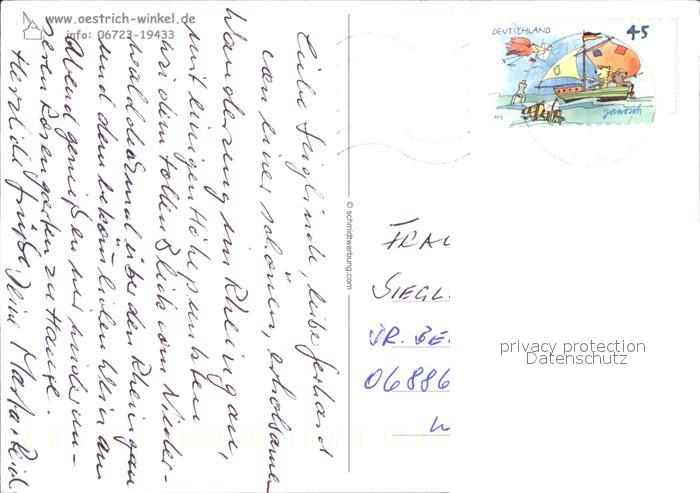 www.oestrich-winkel.de
info: 06723-19433
Liebe Sieglinde, lieber Gerhard
von einer schönen, erholsamen
Wanderung im Rheingau,
mit einigen Höhepunkten
wie dem tollen Blick vom Nieder-
walddenkmal über den Rheingau
und dem bekömmlichen Wein am
Abend genießen wir wieder un-
seren Rosengarten zu Hause.
Herzliche Grüße Deine Marta
© schmidtwerbung.com
DEUTSCHLAND 45
janosch
FRAU
SIEGL.
DR. BE
06886
privacy protection
Datenschutz